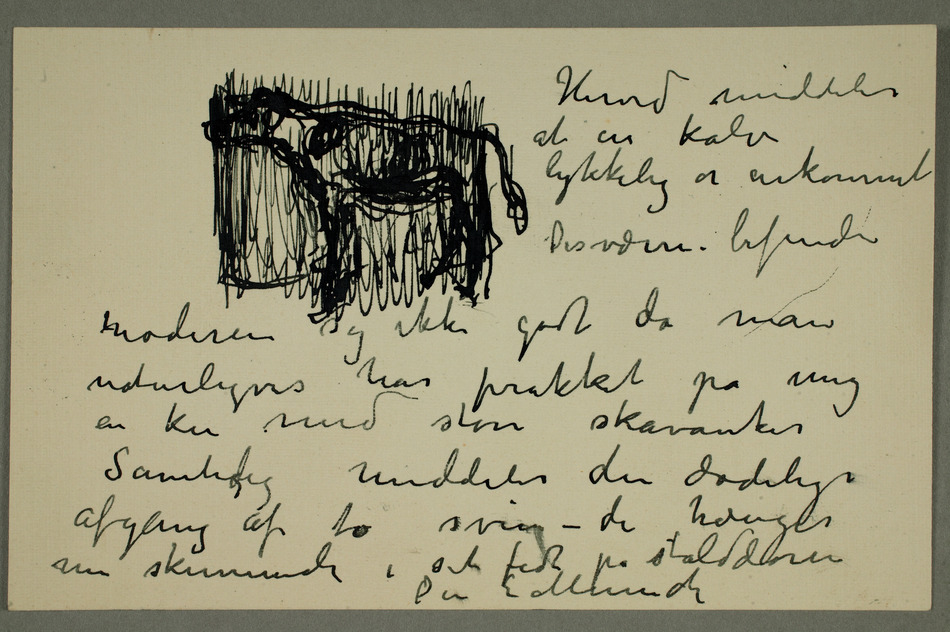 Herved middeles
at en kalv
lykkelig er ankommet
Desværre befinder
moderen sig ikke godt da man
naturligvis har prakket på mig
en ku med store skavanker
Samtidig middeles den dødelige
afgang af to svin – de hænger
nu skinnende i sit fedt på stalddøren
Din E Munch